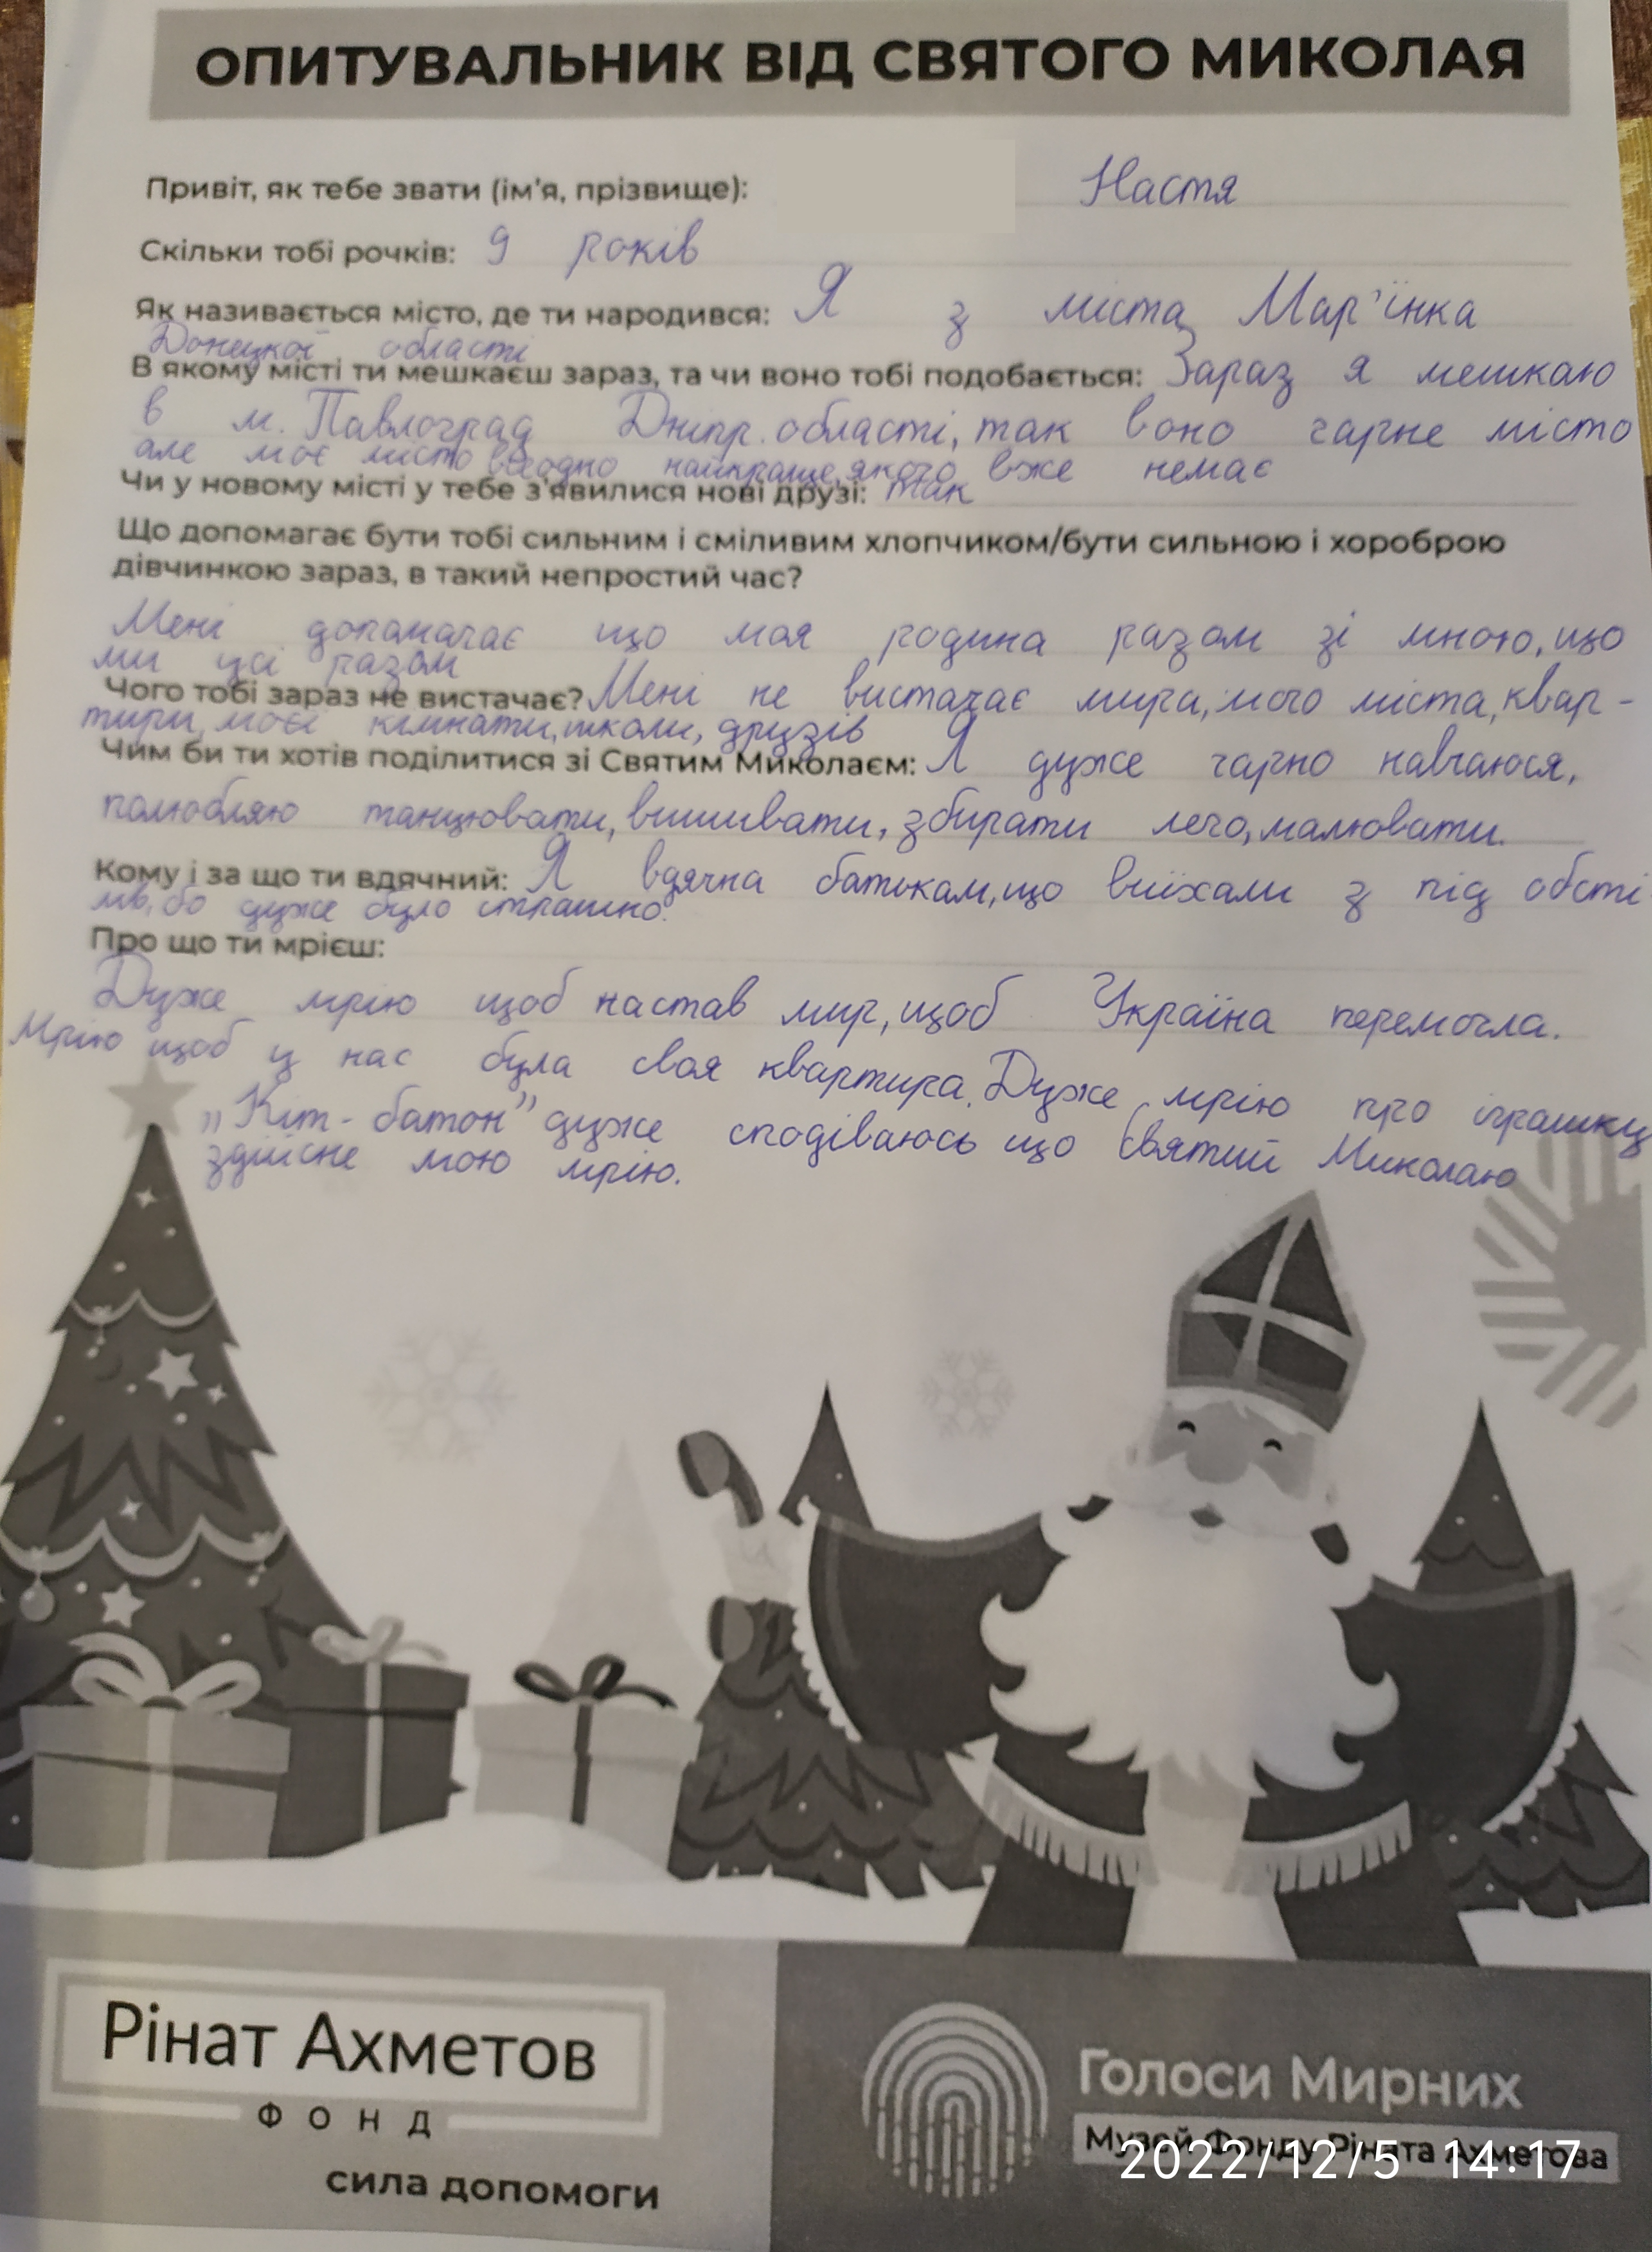 ОПИТУВАЛЬНИК ВІД СВЯТОГО МИКОЛАЯ
Привіт, як тебе звати (ім'я, прізвище): Настя
Скільки тобі рочків: 9 років
Як називається місто, де ти народився: Я з міста Мар'їнка
Донецкої області
В якому місті ти мешкаєш зараз, та чи воно тобі подобається: Зараз я мешкаю
в м. Павлоград Дніпр. області, так воно гарне місто
але моє місто всеодно найкраще, якого вже немає
Чи у новому місті у тебе з'явилися нові друзі: так
Що допомагає бути тобі сильним і сміливим хлопчиком/бути сильною і хороброю
дівчинкою зараз, в такий непростий час?
Мені допомагає що моя родина разом зі мною, що
ми усі разом
Чого тобі зараз не вистачає? Мені не вистачає мира, мого міста, квар-
тири, моєї кімнати, школи, друзів
Чим би ти хотів поділитися зі Святим Миколаєм: Я дуже гарно навчаюся,
полюбляю танцювати, вишивати, збирати лего, малювати.
Кому і за що ти вдячний: Я вдячна батькам, що виїхали з під обсті
лів, бо дуже було страшно.
Про що ти мрієш:
Дуже мрію щоб настав мир, щоб Україна перемогла.
Мрію щоб у нас була своя квартира. Дуже мрію про іграшку
„Кіт-батон" дуже сподіваюсь що Святий Миколаю
здійсне мою мрію.
Рінат Ахметов
ФОНД
сила допомоги
Голоси Мирних
Музей Фонду Ріната Ахметова
2022/12/5 14:17